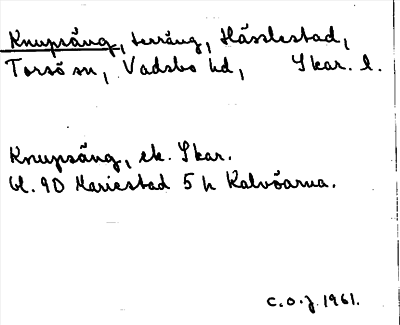 Knupsäng, terräng, Hässlestad,
Torsö sn, Vadsbo hd, Skar. l.
Knupsäng, ek. Skar.
bl. 9D Mariestad 5 h Kalvöarna.
C.O.J. 1961.